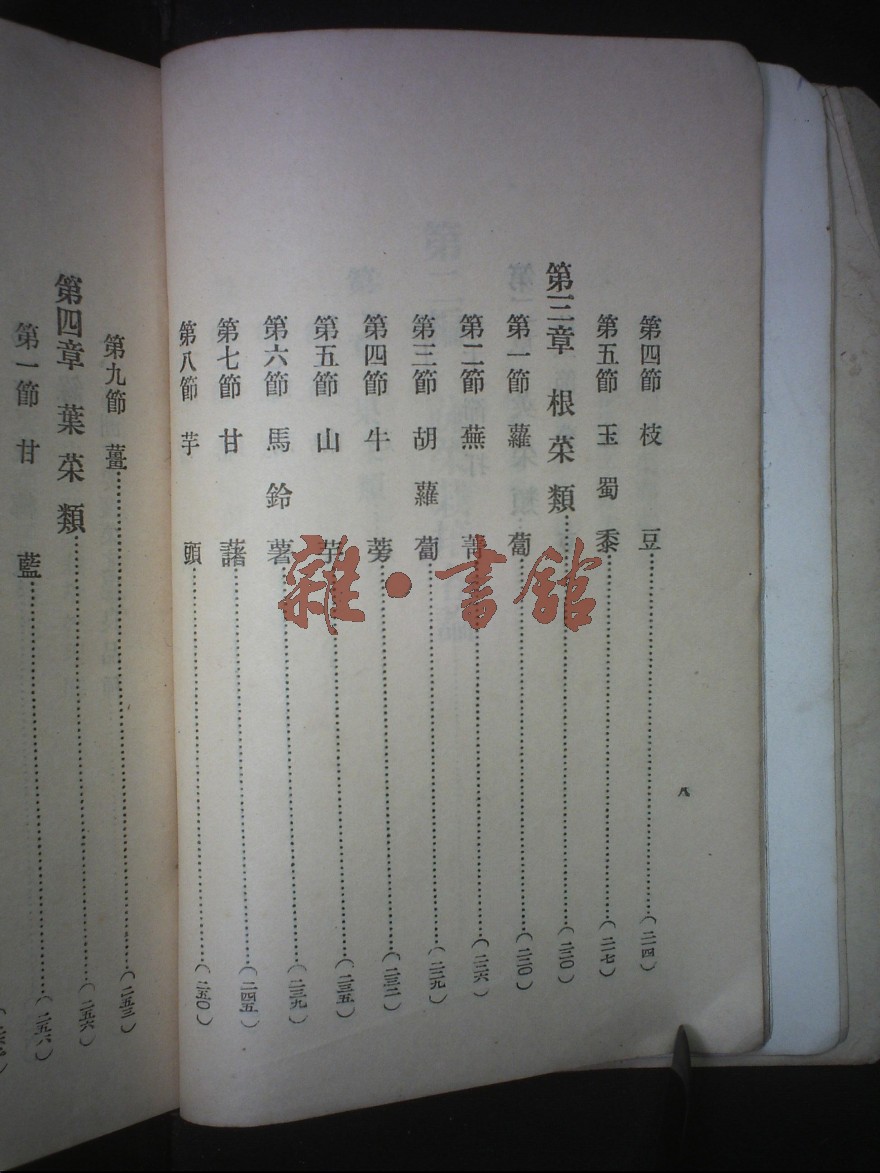 第四節 枝豆……(二一四)
第五節 玉蜀黍……(二一七)
第三章 根菜類……(二二〇)
第一節 蘿蔔……(二二〇)
第二節 蕪菁……(二二六)
第三節 胡蘿蔔……(二二九)
第四節 牛蒡……(二三二)
第五節 山芋……(二三五)
第六節 馬鈴薯……(二三九)
第七節 甘藷……(二四五)
第八節 芋頭……(二五〇)
八
第九節 薑……(二五三)
第四章 葉菜類……(二五六)
第一節 甘藍……(二五六)
雜·書館